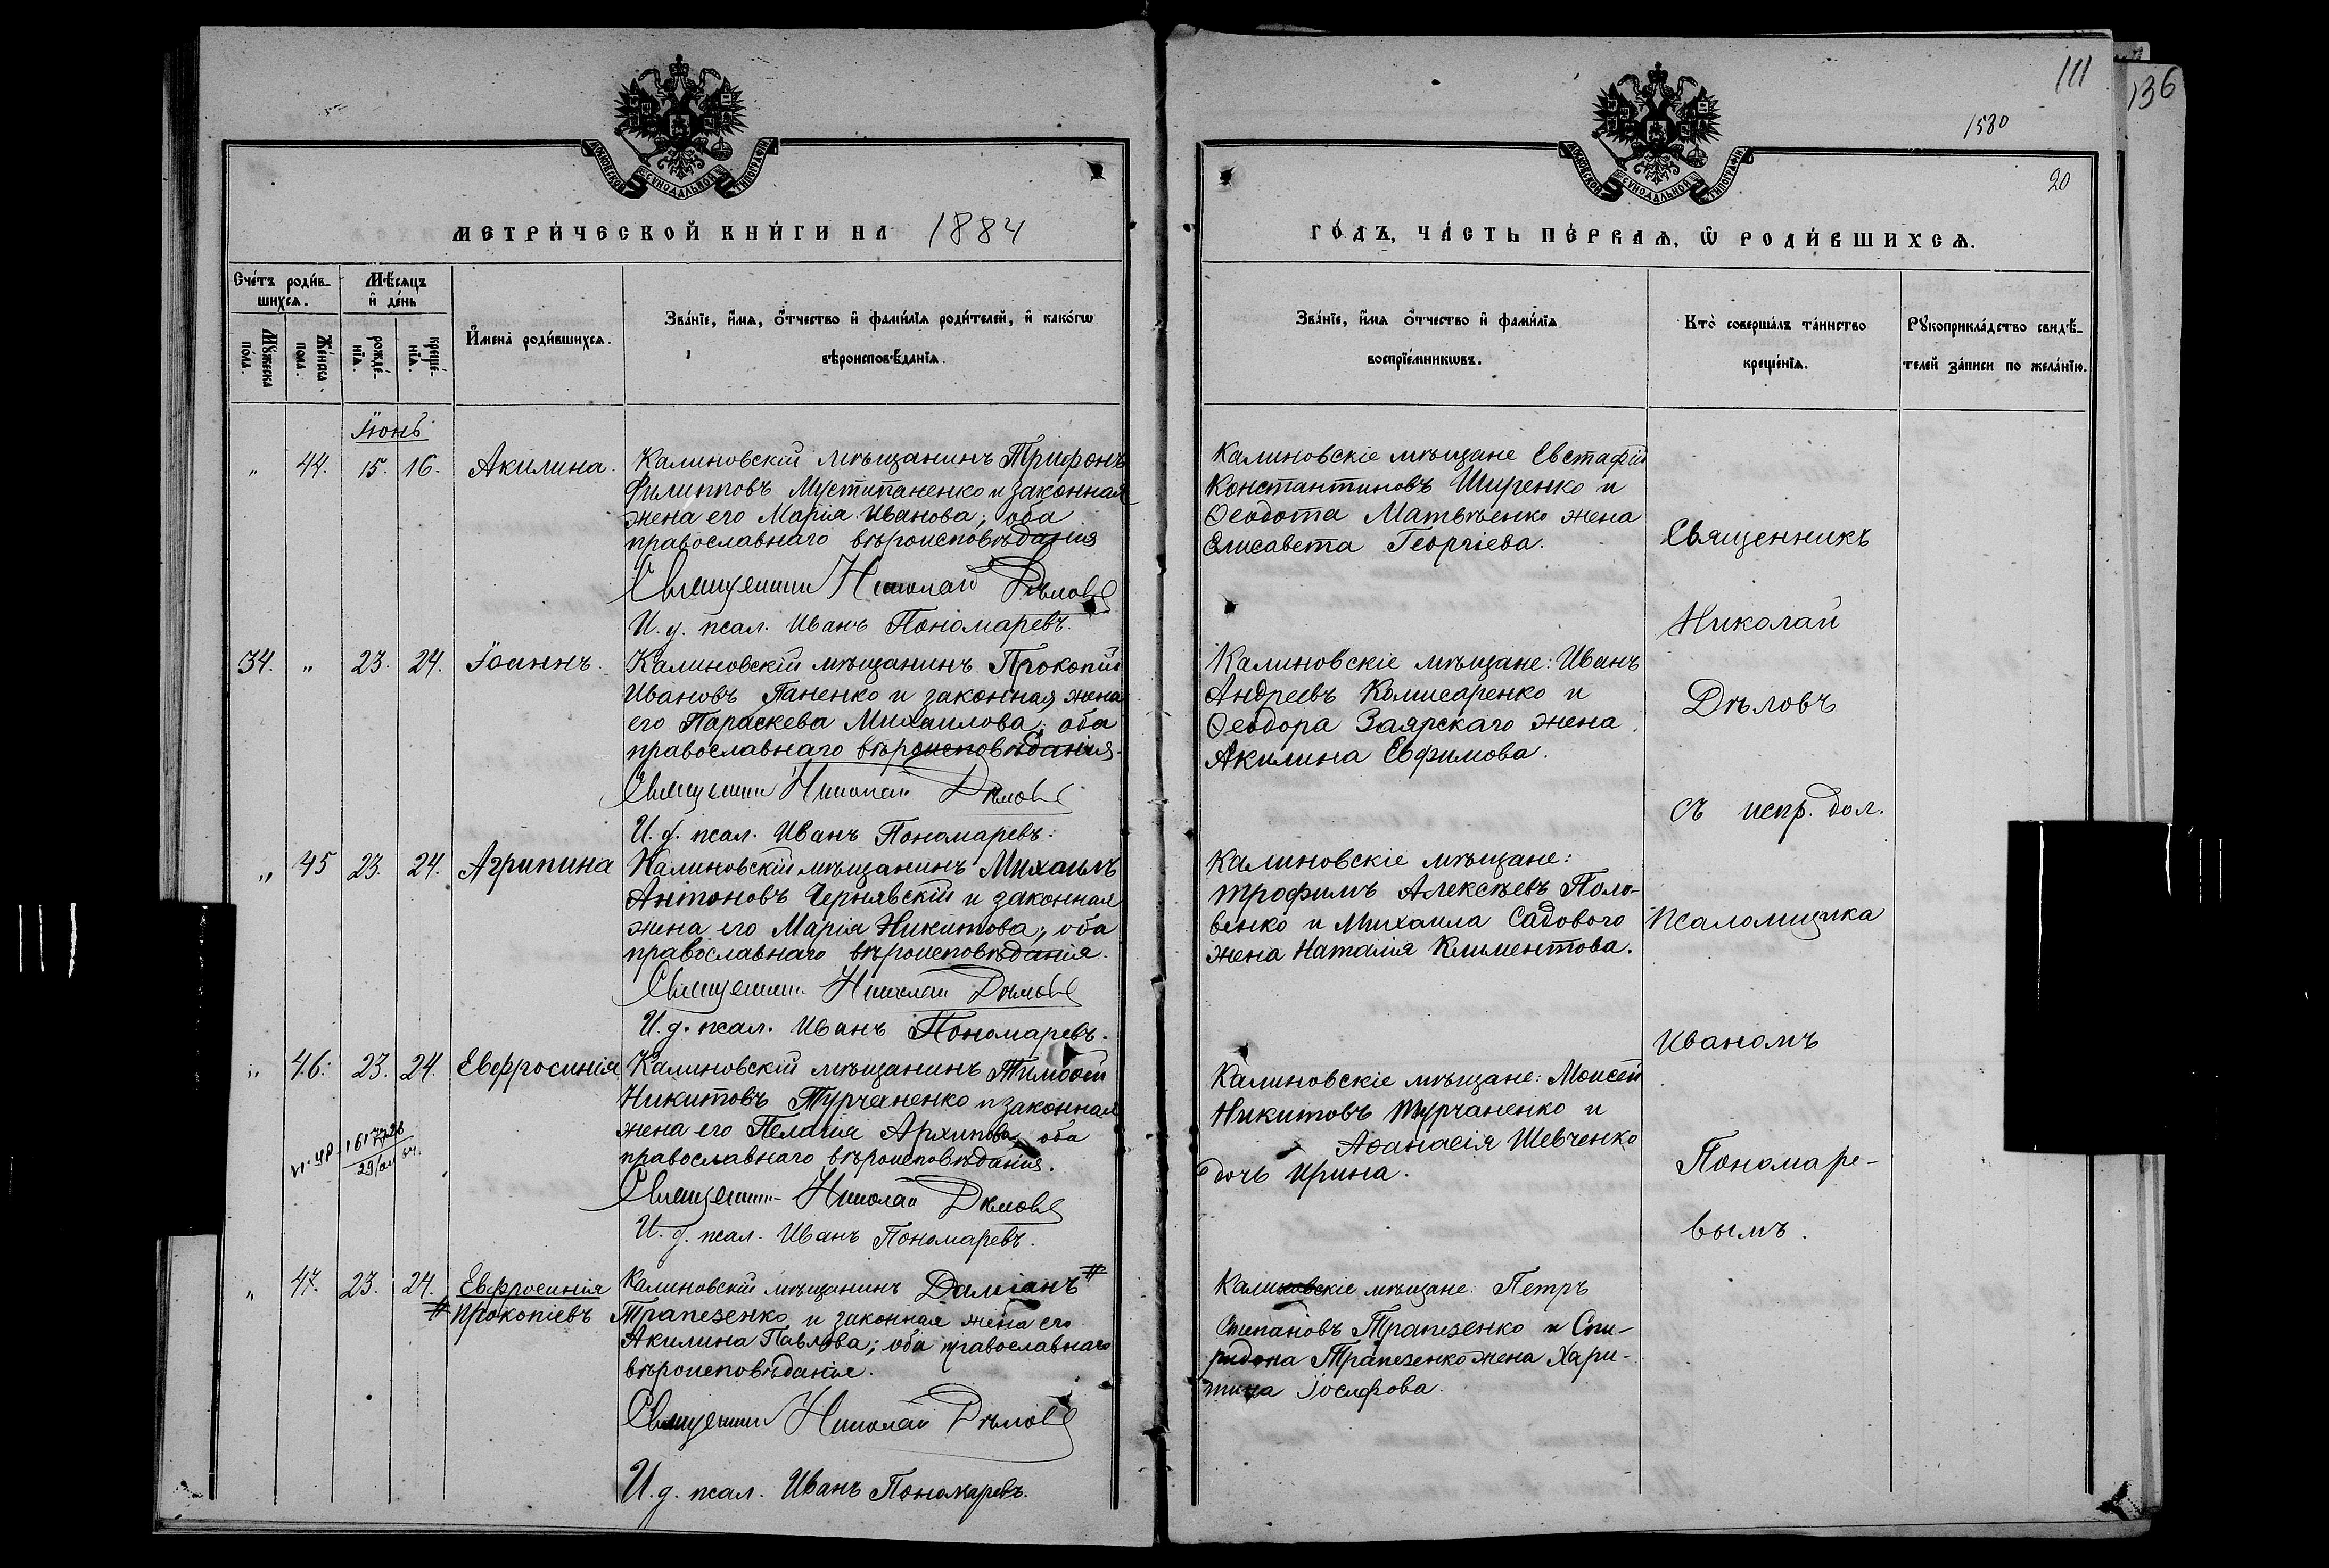 111
136
1580
20
МОСКОВСКОЙ СѴНОДАЛЬНОЙ ТИПОГРАФІИ.
МОСКОВСКОЙ СѴНОДАЛЬНОЙ ТИПОГРАФІИ.
МЕТРИ́ЧЕСКОЙ КНИ́ГИ НА 1884
ГО́ДЪ, ЧА́СТЬ ПЕ́РВАѦ, Ѡ РОДИ́ВШИХСѦ.
Сче́тъ роди́в-
шихсѧ.
Мѣ́сѧцъ
и҆ де́нь
Мꙋ́жеска
по́ла.
Же́нска
по́ла.
рожде́-
нїѧ.
креще́-
нїѧ.
И҆мена̀ роди́вшихсѧ.
Зва́нїе, и҆́мѧ, ѻ҆́тчество и҆ фами́лїѧ роди́телей, и҆ како́гѡ
вѣроисповѣ́данїѧ.
Зва́нїе, и҆́мѧ ѻ҆́тчество и҆ фами́лїѧ
воспрїе́мникѡвъ.
Кто̀ соверша́лъ та́инство
креще́нїѧ.
Рꙋкоприкла́дство свидѣ́-
телей за́писи по жела́нїю.
Іюнь
„ 44. 15. 16. Акилина.
Калиновскій мѣщанинъ Трифонъ
Филипповъ Мустипаненко и законная
жена его Марія Иванова; оба
православнаго вѣроисповѣданія
Священникъ Николай Дѣловъ
И. д. псал. Иванъ Пономаревъ.
Калиновскіе мѣщане Евстафій
Константиновъ Ширенко и
Ѳеодота Матвѣенко жена
Елисавета Георгіева.
34. „ 23. 24. Іоаннъ.
Калиновскій мѣщанинъ Прокопій
Ивановъ Паненко и законная жена
его Параскева Михаилова; оба
православнаго вѣроисповѣданія.
Священникъ Николай Дѣловъ
И. д. псал. Иванъ Пономаревъ.
Калиновскіе мѣщане: Иванъ
Андреевъ Комисаренко и
Ѳеодора Заярскаго жена
Акилина Евфимова.
„ 45 23. 24. Агрипина
Калиновскій мѣщанинъ Михаилъ
Антоновъ Чернявскій и законная
жена его Марія Никитова; оба
православнаго вѣроисповѣданія.
Священникъ Николай Дѣловъ
И. д. псал. Иванъ Пономаревъ.
Калиновскіе мѣщане:
Трофимъ Алексѣевъ Поло-
венко и Михаила Садового
жена Наталія Климентова.
„ 46. 23. 24. Евфросинія
Калиновскій мѣщанинъ Тимоѳей
Никитовъ Турчаненко и законная
жена его Пелагія Архипова, оба
православнаго вѣроисповѣданія.
Священникъ Николай Дѣловъ
И. д. псал. Иванъ Пономаревъ.
Калиновскіе мѣщане: Моисей
Никитовъ Турчаненко и
Аѳанасія Шевченко
дочь Ирина.
„ 47. 23. 24. Евфросинія
# Прокопіевъ
Калиновскій мѣщанинъ Даміанъ #
Трапезенко и законная жена его
Акилина Павлова; оба православнаго
вѣроисповѣданія.
Священникъ Николай Дѣловъ
И. д. псал. Иванъ Пономаревъ.
Калиновскіе мѣщане: Петръ
Степановъ Трапезенко и Спи-
ридона Трапезенко жена Хари-
тина Іосифова.
Священникъ
Николай
Дѣловъ
съ испр. дол.
псаломщика
Иваномъ
Пономаре-
вымъ.